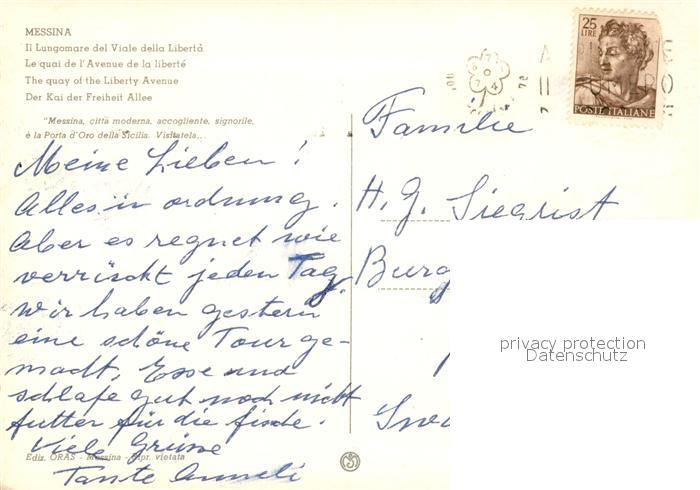 MESSINA
Il Lungomare del Viale della Libertà
Le quai de l'Avenue de la liberté
The quay of the Liberty Avenue
Der Kai der Freiheit Allee
"Messina, città moderna, accogliente, signorile,
è la Porta d'Oro della Sicilia. Visitatela...
25
LIRE
POSTE ITALIANE
Meine Lieben!
Alles in ordnung.
Aber es regnet wie
verrückt jeden Tag.
Wir haben gestern
eine schöne Tour ge-
macht, Esse und
schlafe gut noch nicht
futter für die fische.
Viele Grüsse
Tante Anneli
Familie
H. G. Siegrist
Burg
privacy protection
Datenschutz
Ediz. ORAS - Messina - Ripr. vietata